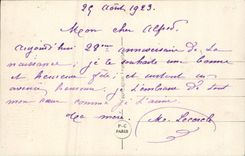 25 Août, 1923.
Mon cher Alfred.
Aujourd'hui 29me anniversaire de ta
naissance; je te souhaite une bonne
et heureuse fête; et surtout un
avenir heureux, je t'embrasse de tout
mon cœur comme je t'aime.
Ma
P-C
PARIS